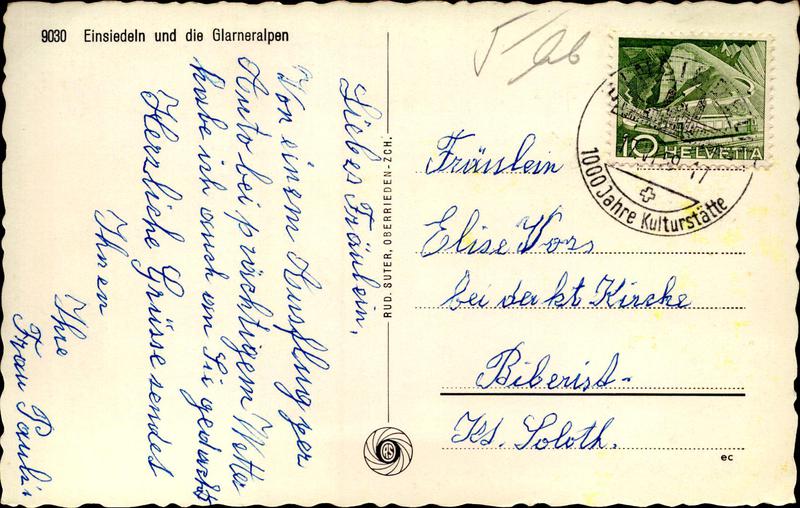 9030 Einsiedeln und die Glarneralpen
Liebes Fräulein,
Von einem Ausflug per
Auto bei prächtigem Wetter
habe ich auch an Sie gedacht
Herzliche Grüsse sendet
Ihnen
Ihre
Frau Pauli
RUD. SUTER, OBERRIEDEN-ZCH.
RS
10 HELVETIA
1000 Jahre Kulturstätte
Fräulein
Elise Vors
bei der kt Kirche
Biberist-
Kt. Soloth.
ec